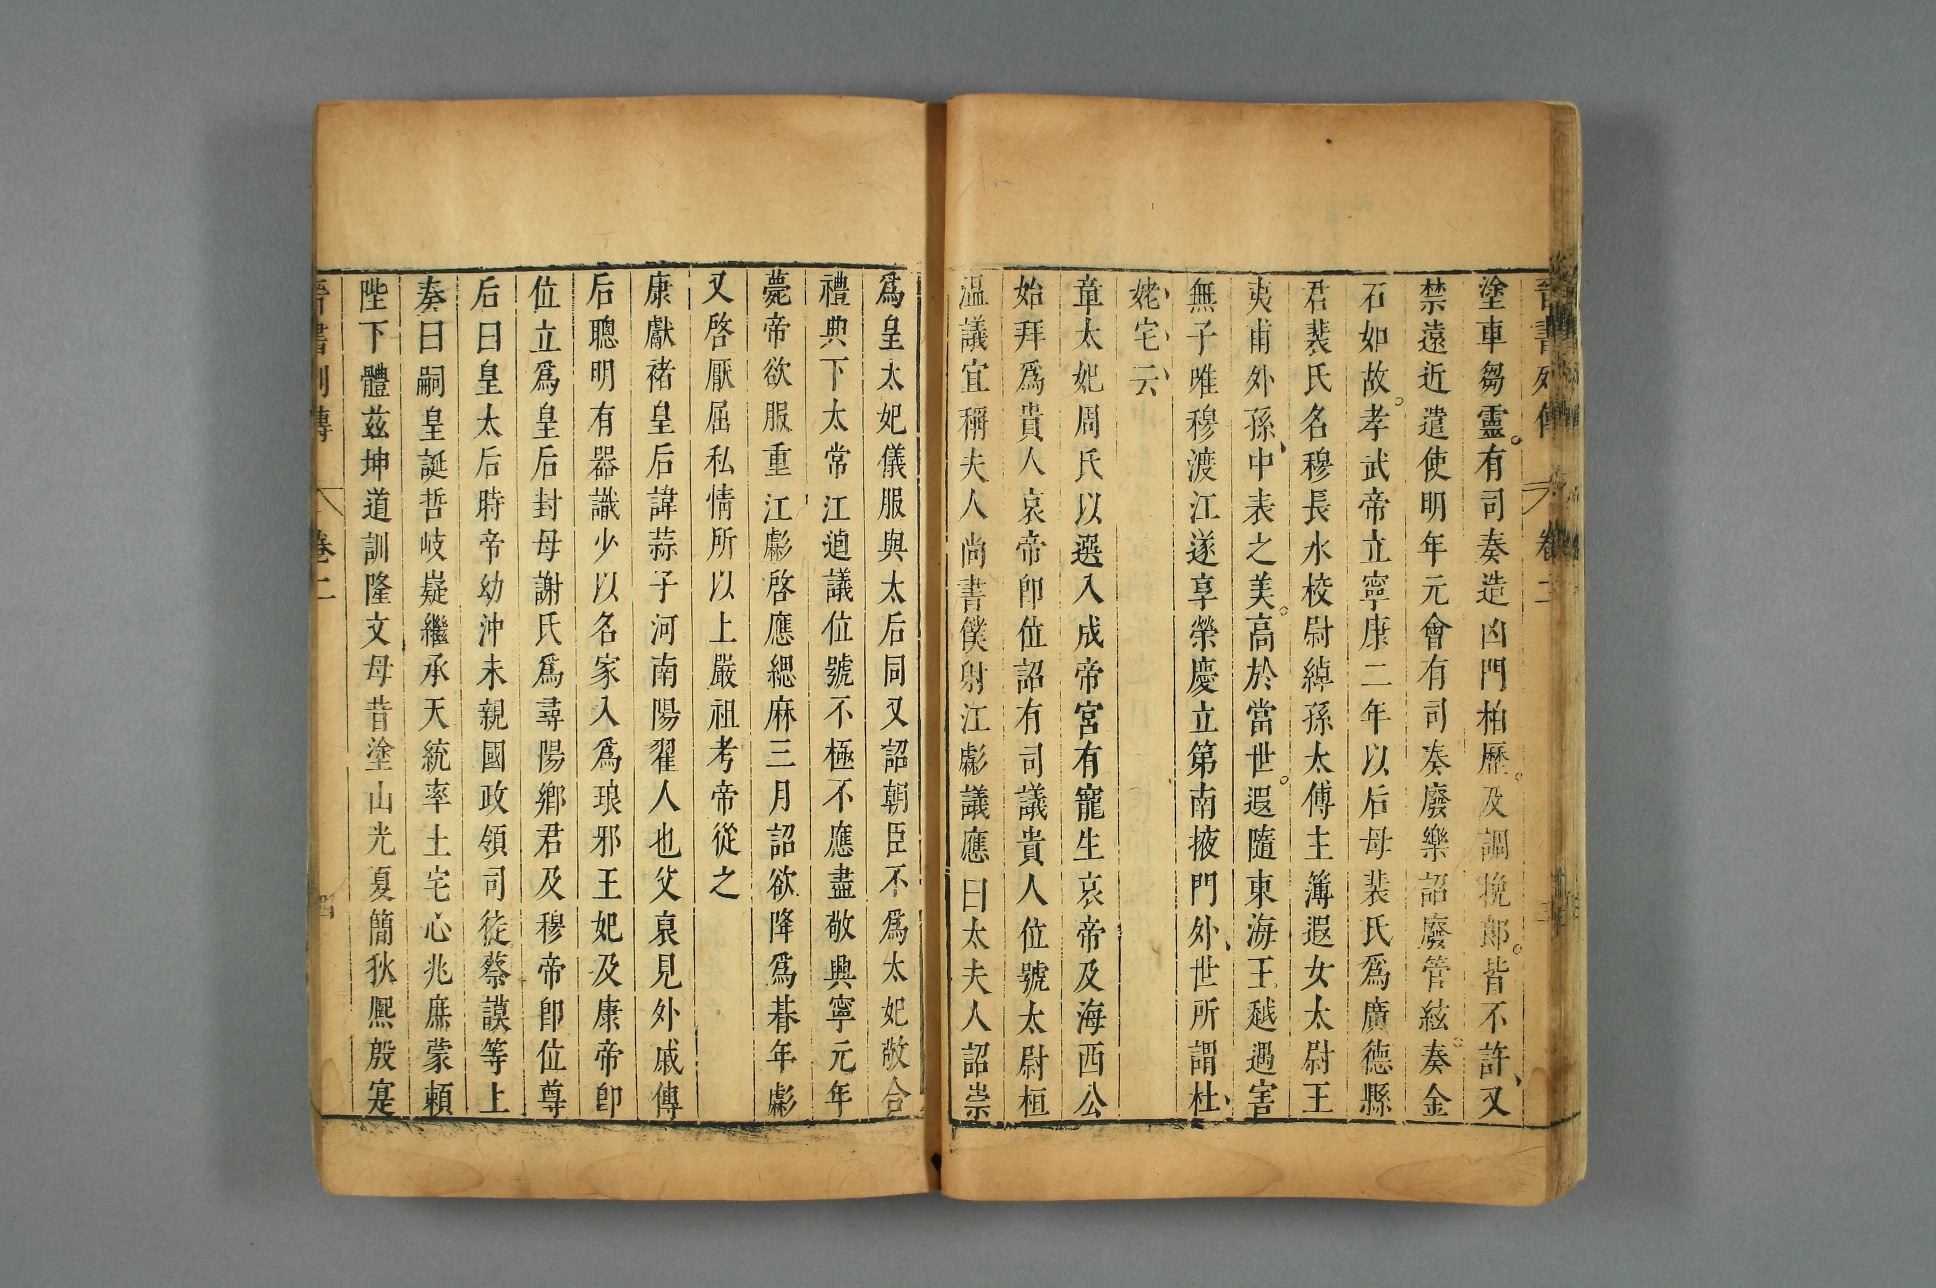 晉書列傳 卷二
塗車芻靈有司奏造凶門柏歷及調挽郎皆不許又
禁遠近遣使明年元會有司奏廢樂詔廢管絃奏金
石如故孝武帝立寧康二年以后母裴氏爲廣德縣
君裴氏名穆長水校尉綽孫太傅主簿遐女太尉王
夷甫外孫中表之美高於當世遐隨東海王越遇害
無子唯穆渡江遂享榮慶立第南掖門外世所謂杜
姥宅云
章太妃周氏以選入成帝宮有寵生哀帝及海西公
始拜爲貴人哀帝卽位詔有司議貴人位號太尉桓
溫議宜稱夫人尚書僕射江虨議應曰太夫人詔崇
爲皇太妃儀服與太后同又詔朝臣不爲太妃敬合
禮典下太常江逌議位號不極不應盡敬興寧元年
薨帝欲服重江虨啓應緦麻三月詔欲降爲朞年虨
又啓厭屈私情所以上嚴祖考帝從之
康獻褚皇后諱蒜子河南陽翟人也父裒見外戚傳
后聰明有器識少以名家入爲琅邪王妃及康帝卽
位立爲皇后封母謝氏爲尋陽鄉君及穆帝卽位尊
后曰皇太后時帝幼沖未親國政領司徒蔡謨等上
奏曰嗣皇誕哲岐嶷繼承天統率土宅心兆庶蒙賴
陛下體茲坤道訓隆文母昔塗山光夏簡狄熙殷寔
晉書列傳 卷二 四